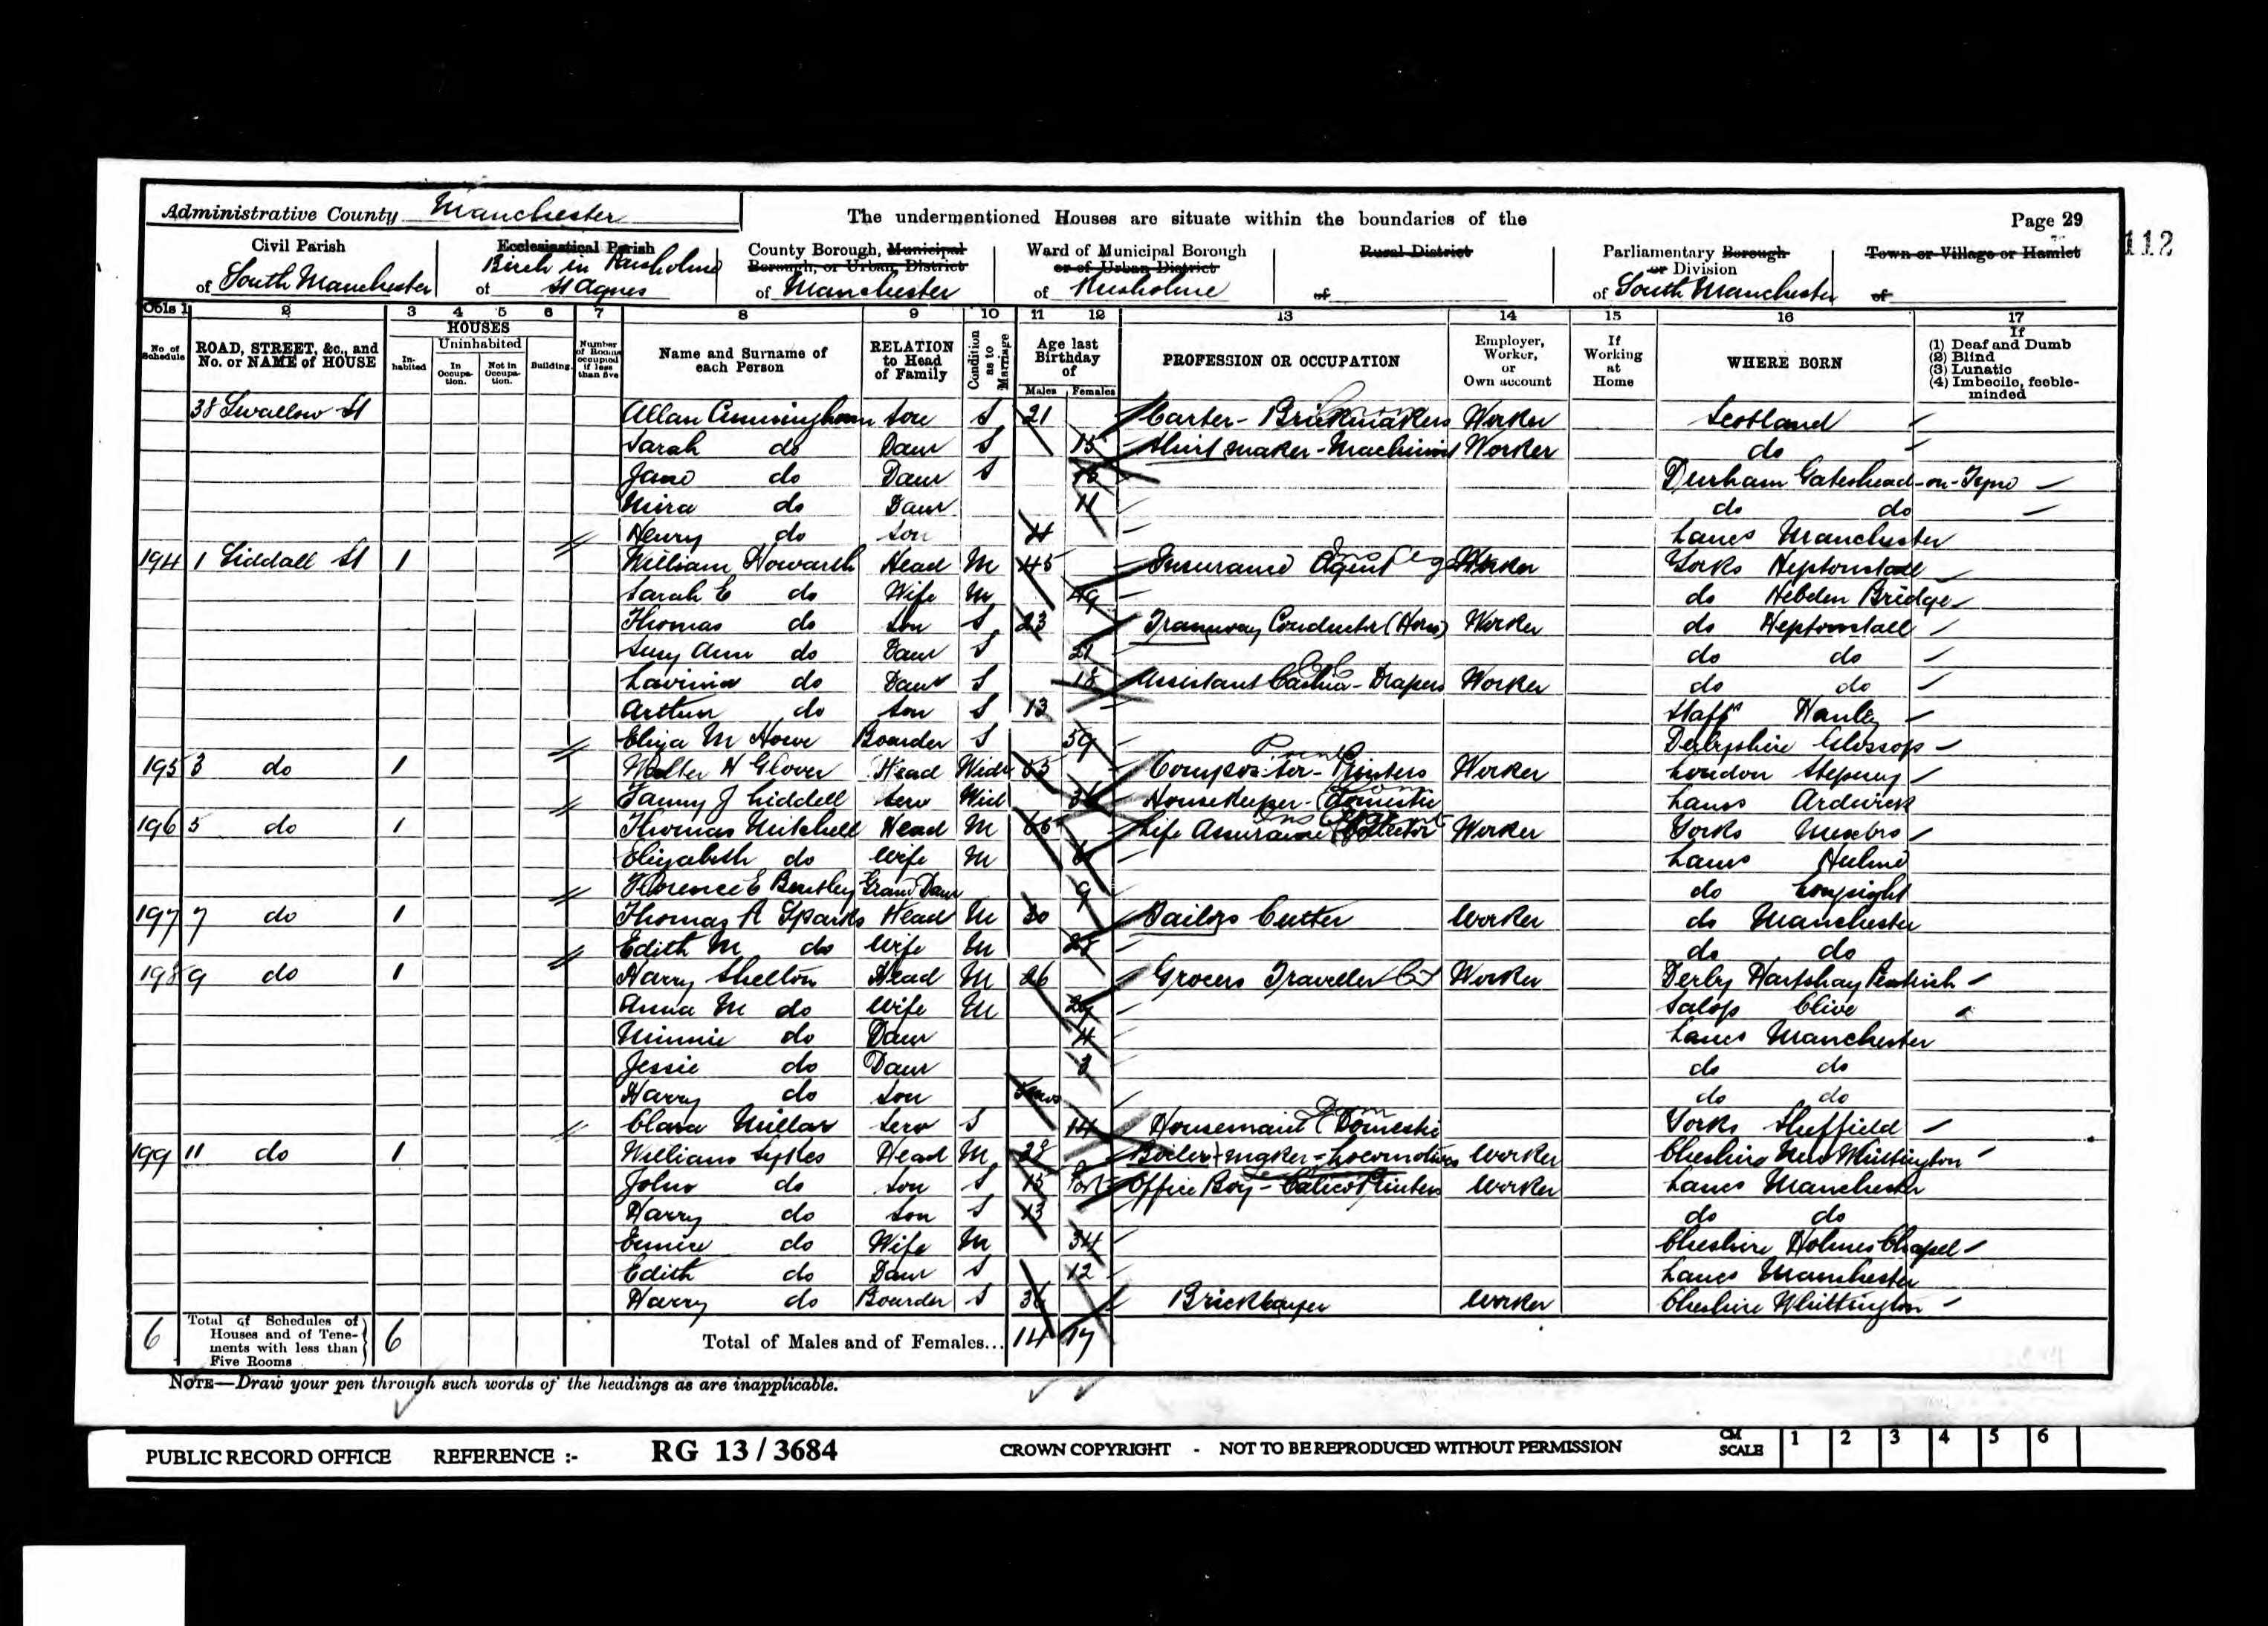 Administrative County Manchester
The undermentioned Houses are situate within the boundaries of the
Page 29
112
Civil Parish of South Manchester
Ecclesiastical Parish of Birch in Rusholme St Agnes
County Borough, Municipal Borough, or Urban District of Manchester
Ward of Municipal Borough or of Urban District of Rusholme
Rural District of
Parliamentary Borough or Division of South Manchester
Town or Village or Hamlet of
Cols 1 2 3 4 5 6 7 8 9 10 11 12 13 14 15 16 17
No. of Schedule
ROAD, STREET, &c., and No. or NAME of HOUSE
HOUSES
In-habited
Uninhabited
In Occupa-tion.
Not in Occupa-tion.
Building.
Number of Rooms occupied if less than five
Name and Surname of each Person
RELATION to Head of Family
Condition as to Marriage
Age last Birthday of
Males Females
PROFESSION OR OCCUPATION
Employer, Worker, or Own account
If Working at Home
WHERE BORN
If (1) Deaf and Dumb (2) Blind (3) Lunatic (4) Imbecile, feeble-minded
38 Swallow St Allan Cunningham Son S 21 Carter - Brickmakers Worker Scotland
Sarah do Daur S 15 Shirt maker - Machinist Worker do
Jane do Daur S Durham Gateshead-on-Tyne
do Daur 11 do do
Henry do Son 4 Lancs Manchester
194 1 Siddall St 1 William Howarth Head M 45 Insurance Agent Worker Yorks Heptonstall
Sarah E do Wife M 49 do Hebden Bridge
Thomas do Son S 23 Tramway Conductor (Horse) Worker do Heptonstall
Lucy Ann do Daur S 21 do do
Lavinia do Daur S 18 Assistant Cashier - Drapers Worker do do
Arthur do Son S 13 Staffs Hanley
Eliza M Howe Boarder S 59 Derbyshire Glossop
195 3 do 1 Walter H Glover Head Widr Compositor - Printers Worker London Stepney
Fanny J Liddell Serv Wid Housekeeper - (Domestic Lancs Ardwick
196 5 do 1 Thomas Mitchell Head M Life Assurance Collector Worker Yorks
Elizabeth do Wife M Lancs Hulme
Florence E Bentley Grand Daur 9 do Longsight
197 7 do 1 Thomas A Sparks Head M 30 Tailors Cutter Worker do Manchester
Edith M do Wife M do do
198 9 do 1 Harry Shelton Head M 26 Grocers Traveller Worker Derby Hartshay Pentrich
Anna M do Wife M Salop Clive
Minnie do Daur 4 Lancs Manchester
Jessie do Daur do do
Harry do Son mos do do
Clara Millar Serv S 14 Housemaid (Domestic Yorks Sheffield
199 11 do 1 William Sykes Head M Boiler maker - Locomotives Worker Cheshire New Whittington
John do Son S 15 Office Boy - Calico Printers Worker Lancs Manchester
Harry do Son S 13 do do
Eunice do Wife M 34 Cheshire Holmes Chapel
Edith do Daur S 12 Lancs Manchester
Harry do Boarder S 36 Bricklayer Worker Cheshire Whittington
6 Total of Schedules of Houses and of Tene-ments with less than Five Rooms 6 Total of Males and of Females... 14 17
NOTE—Draw your pen through such words of the headings as are inapplicable.
PUBLIC RECORD OFFICE REFERENCE :- RG 13 / 3684 CROWN COPYRIGHT - NOT TO BE REPRODUCED WITHOUT PERMISSION CM SCALE 1 2 3 4 5 6